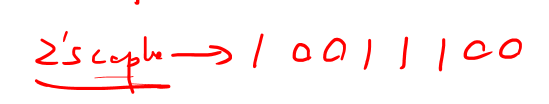 2's comple → 1 0 0 1 1 1 0 0